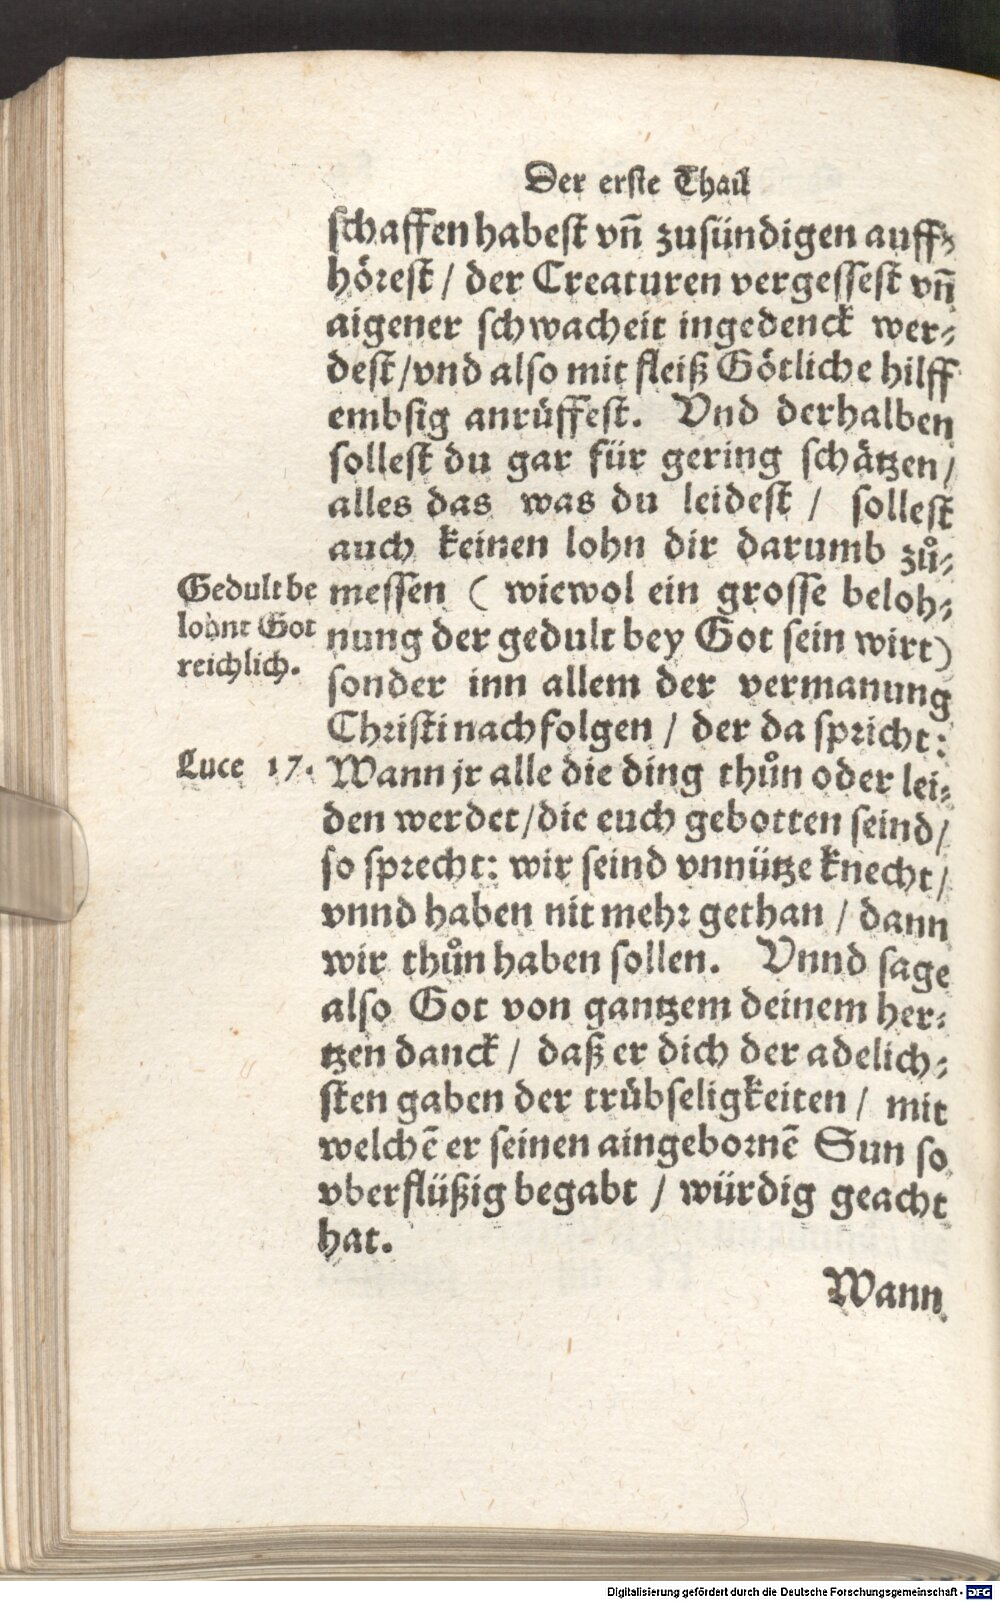 Der erste Thail
schaffen habest vn̄ zusündigen auff⸗
hörest / der Creaturen vergessest vn̄
aigener schwacheit ingedenck wer⸗
dest / vnd also mit fleiß Götliche hilff
embsig anrüffest. Vnd derhalben
sollest du gar für gering schätzen /
alles das was du leidest / sollest
auch keinen lohn dir darumb zů⸗
messen ( wiewol ein grosse beloh⸗
nung der gedult bey Got sein wirt)
sonder inn allem der vermanung
Christi nachfolgen / der da spricht:
Wann jr alle die ding thůn oder lei⸗
den werdet / die euch gebotten seind /
so sprecht: wir seind vnnütze knecht /
vnnd haben nit mehr gethan / dann
wir thůn haben sollen. Vnnd sage
also Got von gantzem deinem her⸗
tzen danck / daß er dich der adelich⸗
sten gaben der trübseligkeiten / mit
welchē er seinen aingebornē Sun so
vberflüßig begabt / würdig geacht
hat.
Wann
Gedult be
lohnt Got
reichlich.
Luce 17.
Digitalisierung gefördert durch die Deutsche Forschungsgemeinschaft - DFG